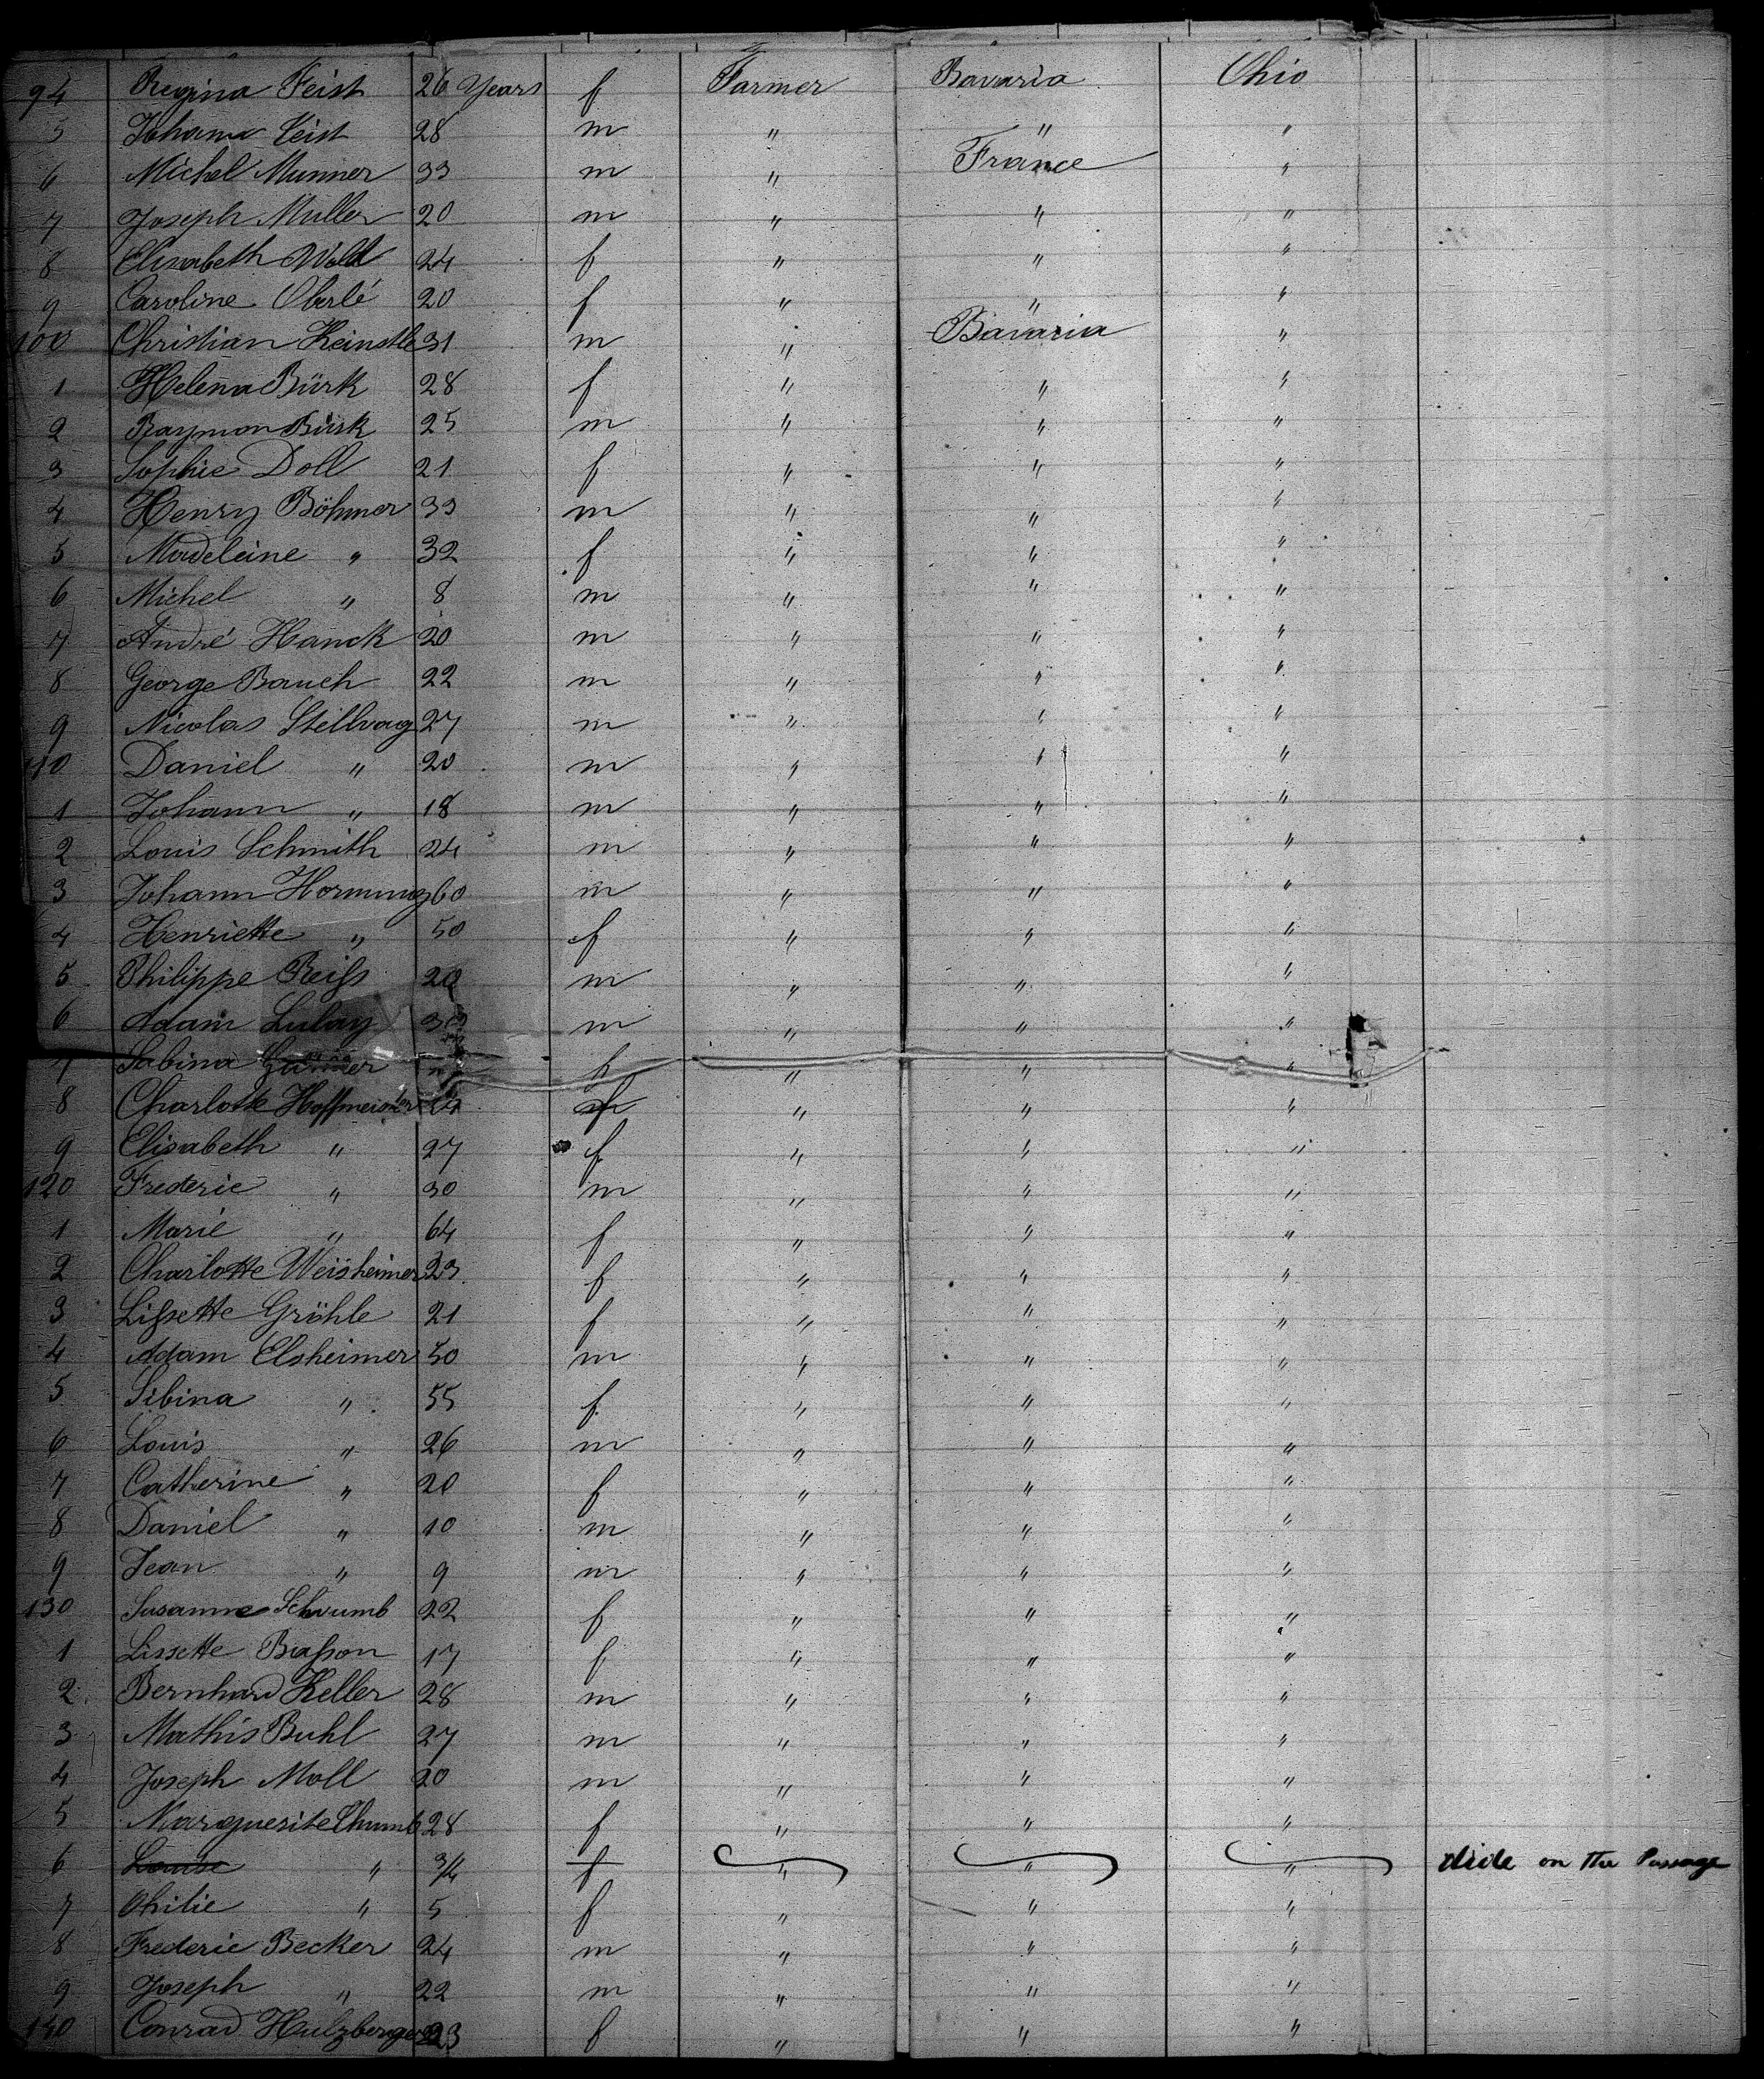 94 Regina Feist 26 Years f Farmer Bavaria Ohio
5 Johann Feist 28 m " " "
6 Michel Munner 33 m " France "
7 Joseph Müller 20 m " " "
8 Elisabeth Wold 24 f " " "
9 Caroline Oberlé 20 f " " "
100 Christian Heinstle 31 m " Bavaria "
1 Helena Bürk 28 f " " "
2 Raymon Bürk 25 m " " "
3 Sophie Doll 21 f " " "
4 Henry Böhmer 33 m " " "
5 Madeleine " 32 f " " "
6 Michel " 8 m " " "
7 André Hanck 20 m " " "
8 George Bauch 22 m " " "
9 Nicolas Stellvag 27 m " " "
110 Daniel " 20 m " " "
1 Johann " 18 m " " "
2 Louis Schmith 24 m " " "
3 Johann Hornung 60 m " " "
4 Henriette " 50 f " " "
5 Philippe Reiß 20 m " " "
6 Adam Lulay m " " "
7 Sabina f " " "
8 Charlotte Hoffmeister 24 f " " "
9 Elisabeth " 27 f " " "
120 Frederic " 30 m " " "
1 Marie " 64 f " " "
2 Charlotte Weisheimer 23 f " " "
3 Lißette Gröhle 21 f " " "
4 Adam Elsheimer 50 m " " "
5 Sibina " 55 f " " "
6 Louis " 26 m " " "
7 Catherine " 20 f " " "
8 Daniel " 10 m " " "
9 Jean " 9 m " " "
130 Susanne Schumb 22 f " " "
1 Lissette Baßon 17 f " " "
2 Bernhard Keller 28 m " " "
3 Mathis Buhl 27 m " " "
4 Joseph Moll 20 m " " "
5 Marguerite Chumb 28 f " " "
6 Louise " 3/4 f " " " dide on the Passage
7 Ohilie " 5 f " " "
8 Frederic Becker 24 m " " "
9 Joseph " 22 m " " "
140 Conrad Hulzberger 23 f " " "